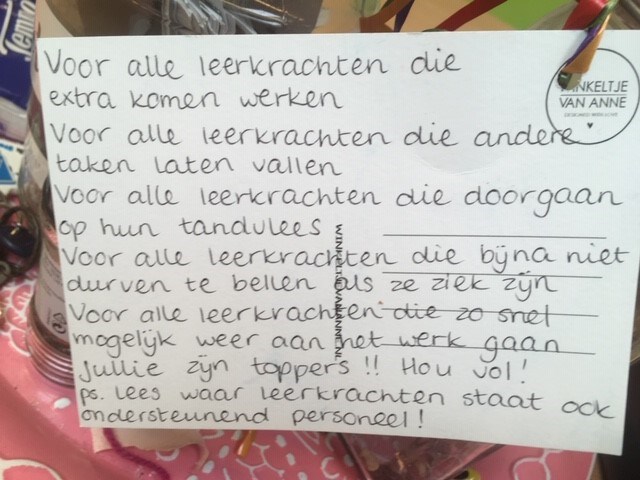 Voor alle leerkrachten die
extra komen werken
Voor alle leerkrachten die andere
taken laten vallen
Voor alle leerkrachten die doorgaan
op hun tandvlees
Voor alle leerkrachten die bijna niet
durven te bellen als ze ziek zijn
Voor alle leerkrachten die zo snel
mogelijk weer aan het werk gaan
Jullie zijn toppers!! Hou vol!
ps. lees waar leerkrachten staat ook
ondersteunend personeel!
VAN ANNE
Tempo